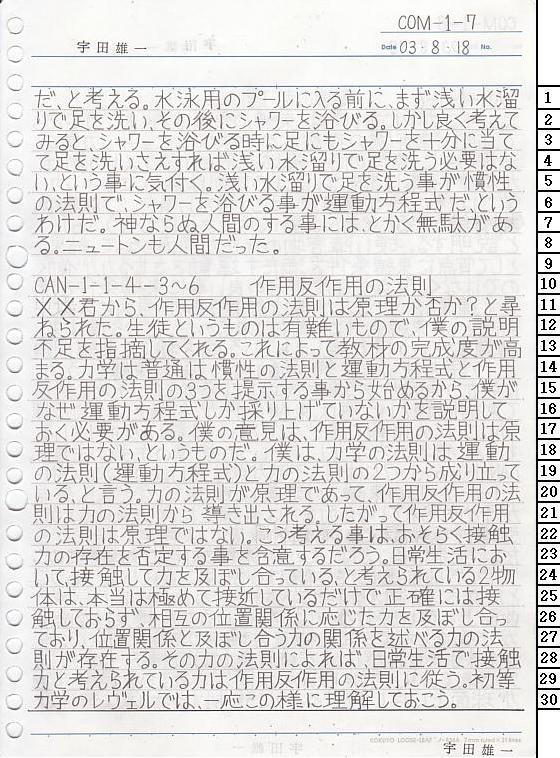 COM-1-7
宇田雄一
Date 03・8・18 No.
だ、と考える。水泳用のプールに入る前に、まず浅い水溜
りで足を洗い、その後にシャワーを浴びる。しかし良く考えて
みると、シャワーを浴びる時に足にもシャワーを十分に当て
て足を洗いさえすれば、浅い水溜りで足を洗う必要はな
い、という事に気付く。浅い水溜りで足を洗う事が慣性
の法則で、シャワーを浴びる事が運動方程式だ、という
わけだ。神ならぬ人間のする事には、とかく無駄があ
る。ニュートンも人間だった。
CAN-1-1-4-3~6 作用反作用の法則
××君から、作用反作用の法則は原理か否か?と尋
ねられた。生徒というものは有難いもので、僕の説明
不足を指摘してくれる。これによって教材の完成度が高
まる。力学は普通は慣性の法則と運動方程式と作用
反作用の法則の3つを提示する事から始めるから、僕が
なぜ運動方程式しか採り上げていないかを説明して
おく必要がある。僕の意見は、作用反作用の法則は原
理ではない、というものだ。僕は、力学の法則は運動
の法則(運動方程式)と力の法則の2つから成り立って
いる、と言う。力の法則が原理であって、作用反作用の法
則は力の法則から導き出される。したがって作用反作用
の法則は原理ではない。こう考える事は、おそらく接触
力の存在を否定する事を含意するだろう。日常生活にお
いて、接触して力を及ぼし合っている、と考えられている2物
体は、本当は極めて接近しているだけで正確には接
触しておらず、相互の位置関係に応じた力を及ぼし合っ
ており、位置関係と及ぼし合う力の関係を述べる力の法
則が存在する。その力の法則によれば、日常生活で接触
力と考えられている力は作用反作用の法則に従う。初等
力学のレヴェルでは、一応この様に理解しておこう。
宇田雄一
1
2
3
4
5
6
7
8
9
10
11
12
13
14
15
16
17
18
19
20
21
22
23
24
25
26
27
28
29
30